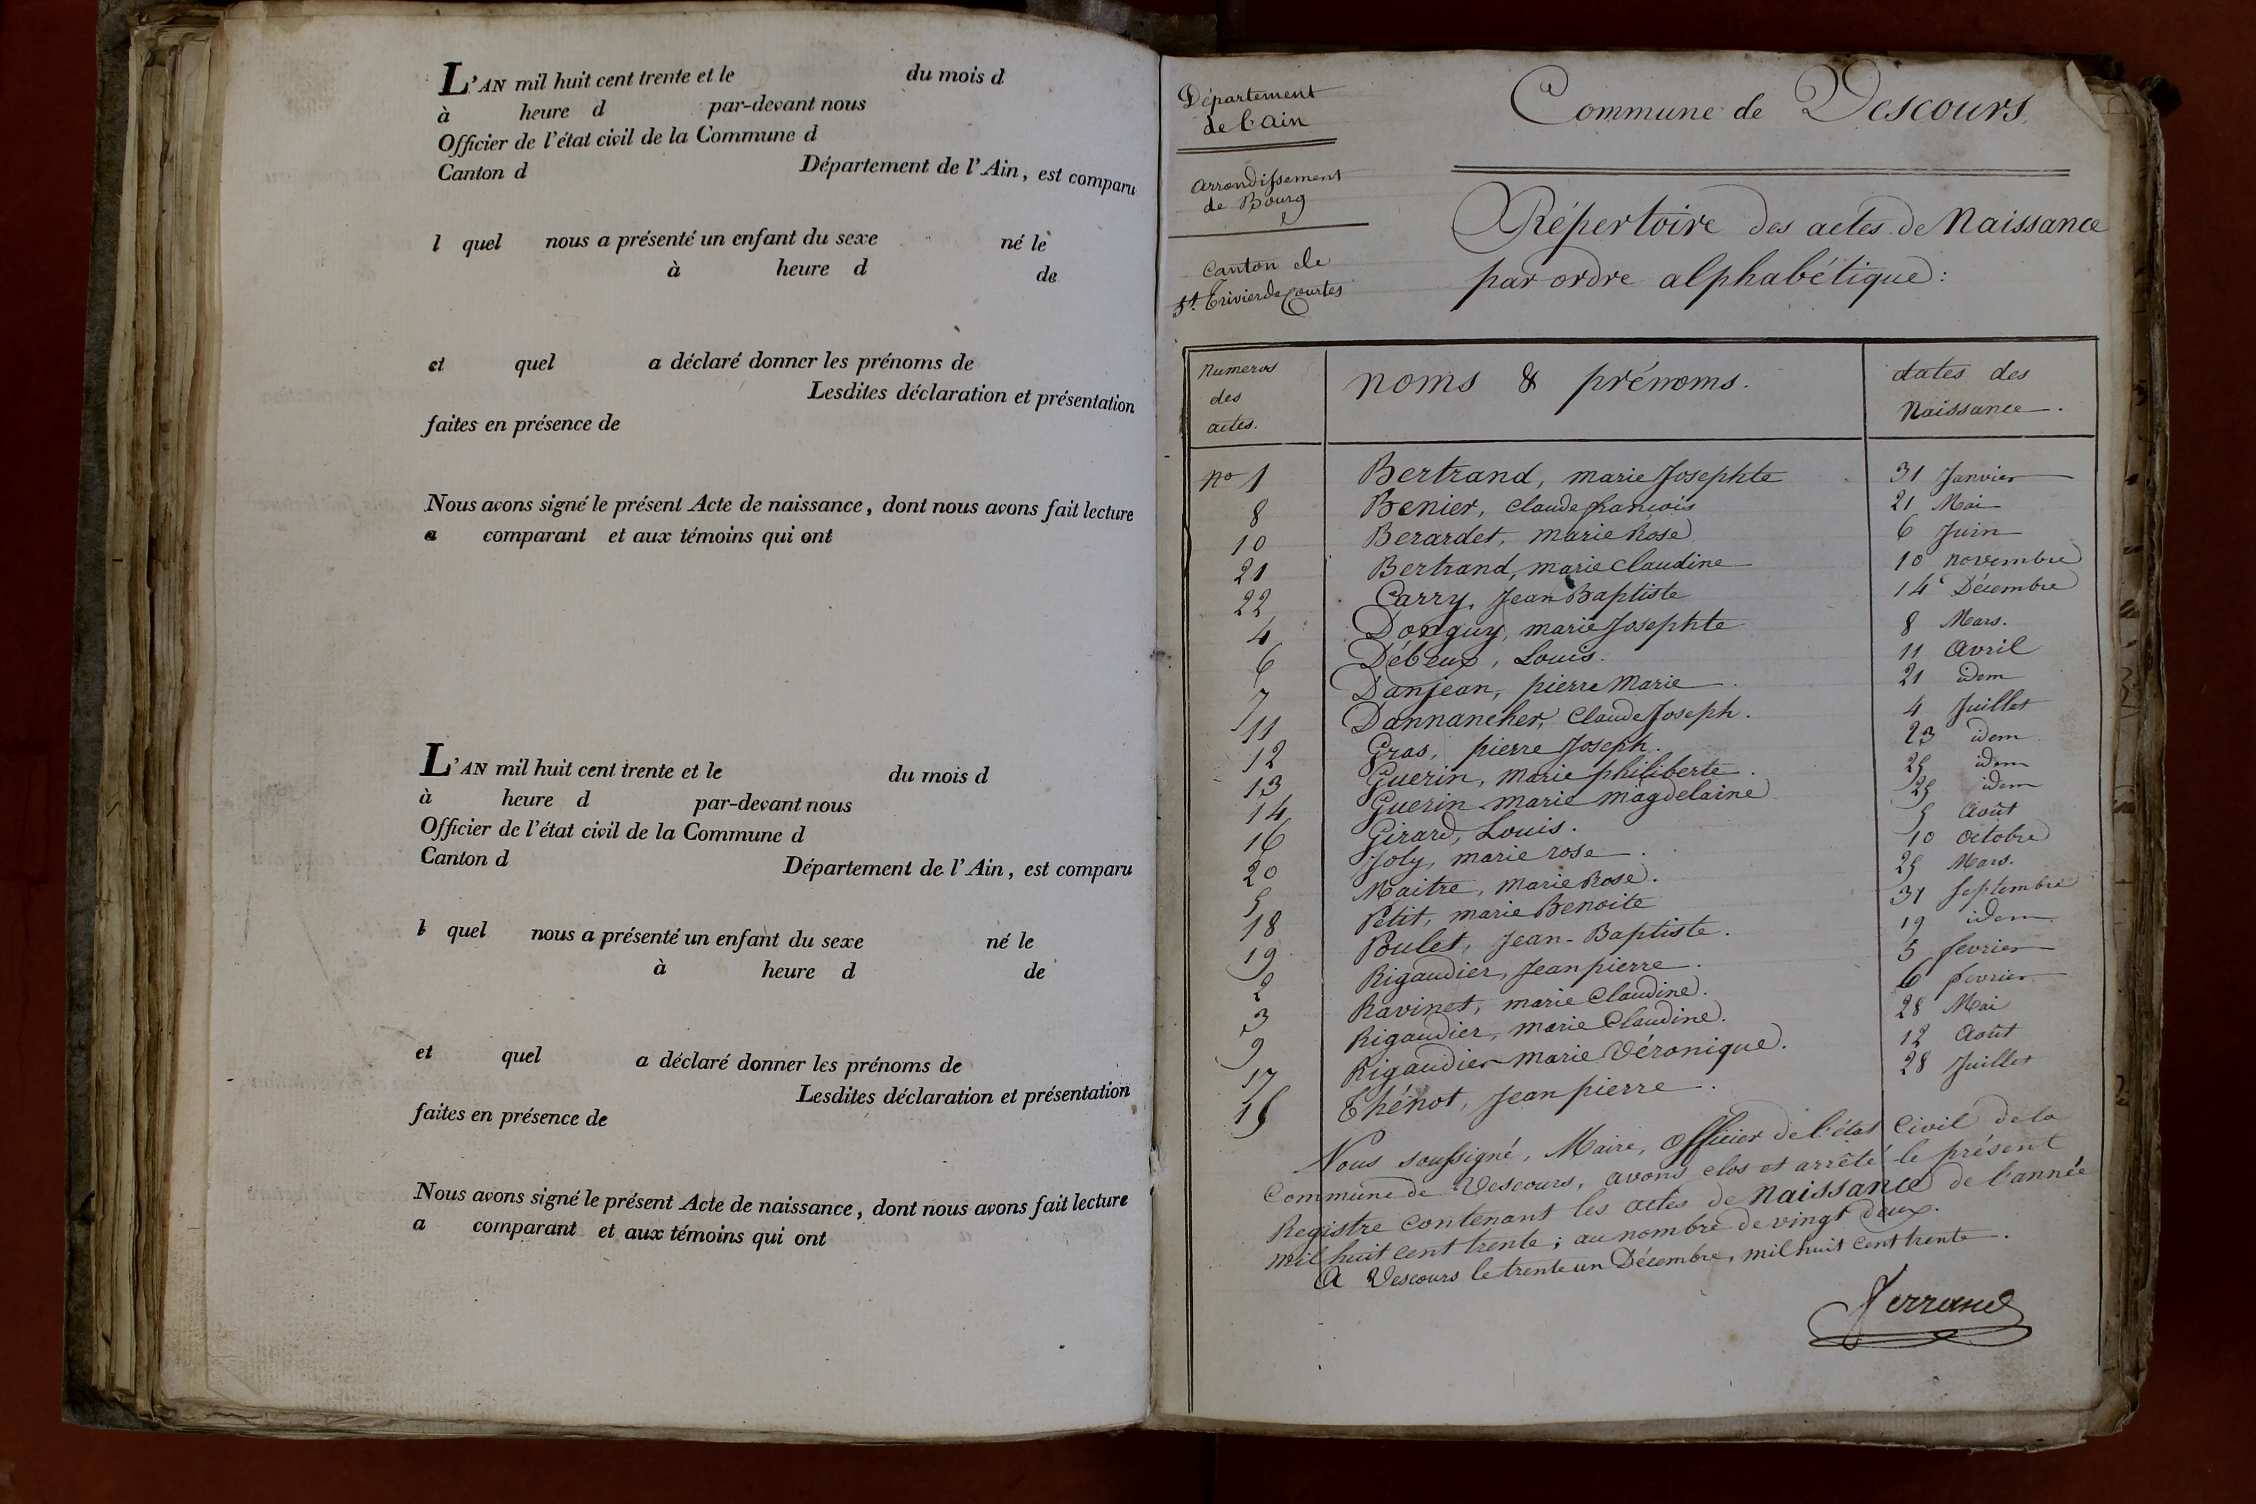 L'AN mil huit cent trente et le du mois d
à heure d par-devant nous
Officier de l'état civil de la Commune d
Canton d Département de l'Ain, est comparu
l quel nous a présenté un enfant du sexe né le
à heure d de
et quel a déclaré donner les prénoms de
Lesdites déclaration et présentation
faites en présence de
Nous avons signé le présent Acte de naissance, dont nous avons fait lecture
a comparant et aux témoins qui ont
L'AN mil huit cent trente et le du mois d
à heure d par-devant nous
Officier de l'état civil de la Commune d
Canton d Département de l'Ain, est comparu
l quel nous a présenté un enfant du sexe né le
à heure d de
et quel a déclaré donner les prénoms de
Lesdites déclaration et présentation
faites en présence de
Nous avons signé le présent Acte de naissance, dont nous avons fait lecture
a comparant et aux témoins qui ont
Département
de l'Ain
Arrondissement
de Bourg
Canton de
St Trivier de Courtes
Commune de Vescours
Répertoire des actes de Naissance
par ordre alphabétique:
Numeros
des
actes.
noms & prénoms.
dates des
Naissance.
No 1 Bertrand, marie Josephte 31 Janvier
8 Benier, Claude francois 21 Mai
10 Berardet, marie Rose 6 Juin
21 Bertrand, marie Claudine 10 novembre
22 Carry, Jean Baptiste 14 Décembre
4 Donguy, marie Josephte 8 Mars.
6 Débeux, Louis. 11 Avril
7 Danjean, pierre Marie 21 idem
11 Dannancher, Claude Joseph. 4 Juillet
12 Gras, pierre Joseph. 23 idem
13 Guerin, Marie philiberte. 25 idem
14 Guerin marie magdelaine 25 idem
16 Girard, Louis. 5 Août
20 Joly, marie rose. 10 Octobre
5 Maitre, Marie Rose. 25 Mars.
18 Petit, marie Benoite 31 Septembre
19 Poulet, Jean-Baptiste. 19 idem
2 Rigaudier, Jean pierre. 5 fevrier
3 Ravinet, marie Claudine. 6 fevrier
9 Rigaudier, marie Claudine. 28 Mai
17 Rigaudier marie Véronique. 12 Août
15 Thénot, Jean pierre. 28 Juillet
Nous soussigné, Maire, Officier de l'état Civil de la
Commune de Vescours, avons clos et arrêté le présent
Registre contenant les actes de Naissance de l'année
mil huit cent trente; au nombre de vingt deux.
A Vescours le trente un Décembre, mil huit cent trente.
Ferrand